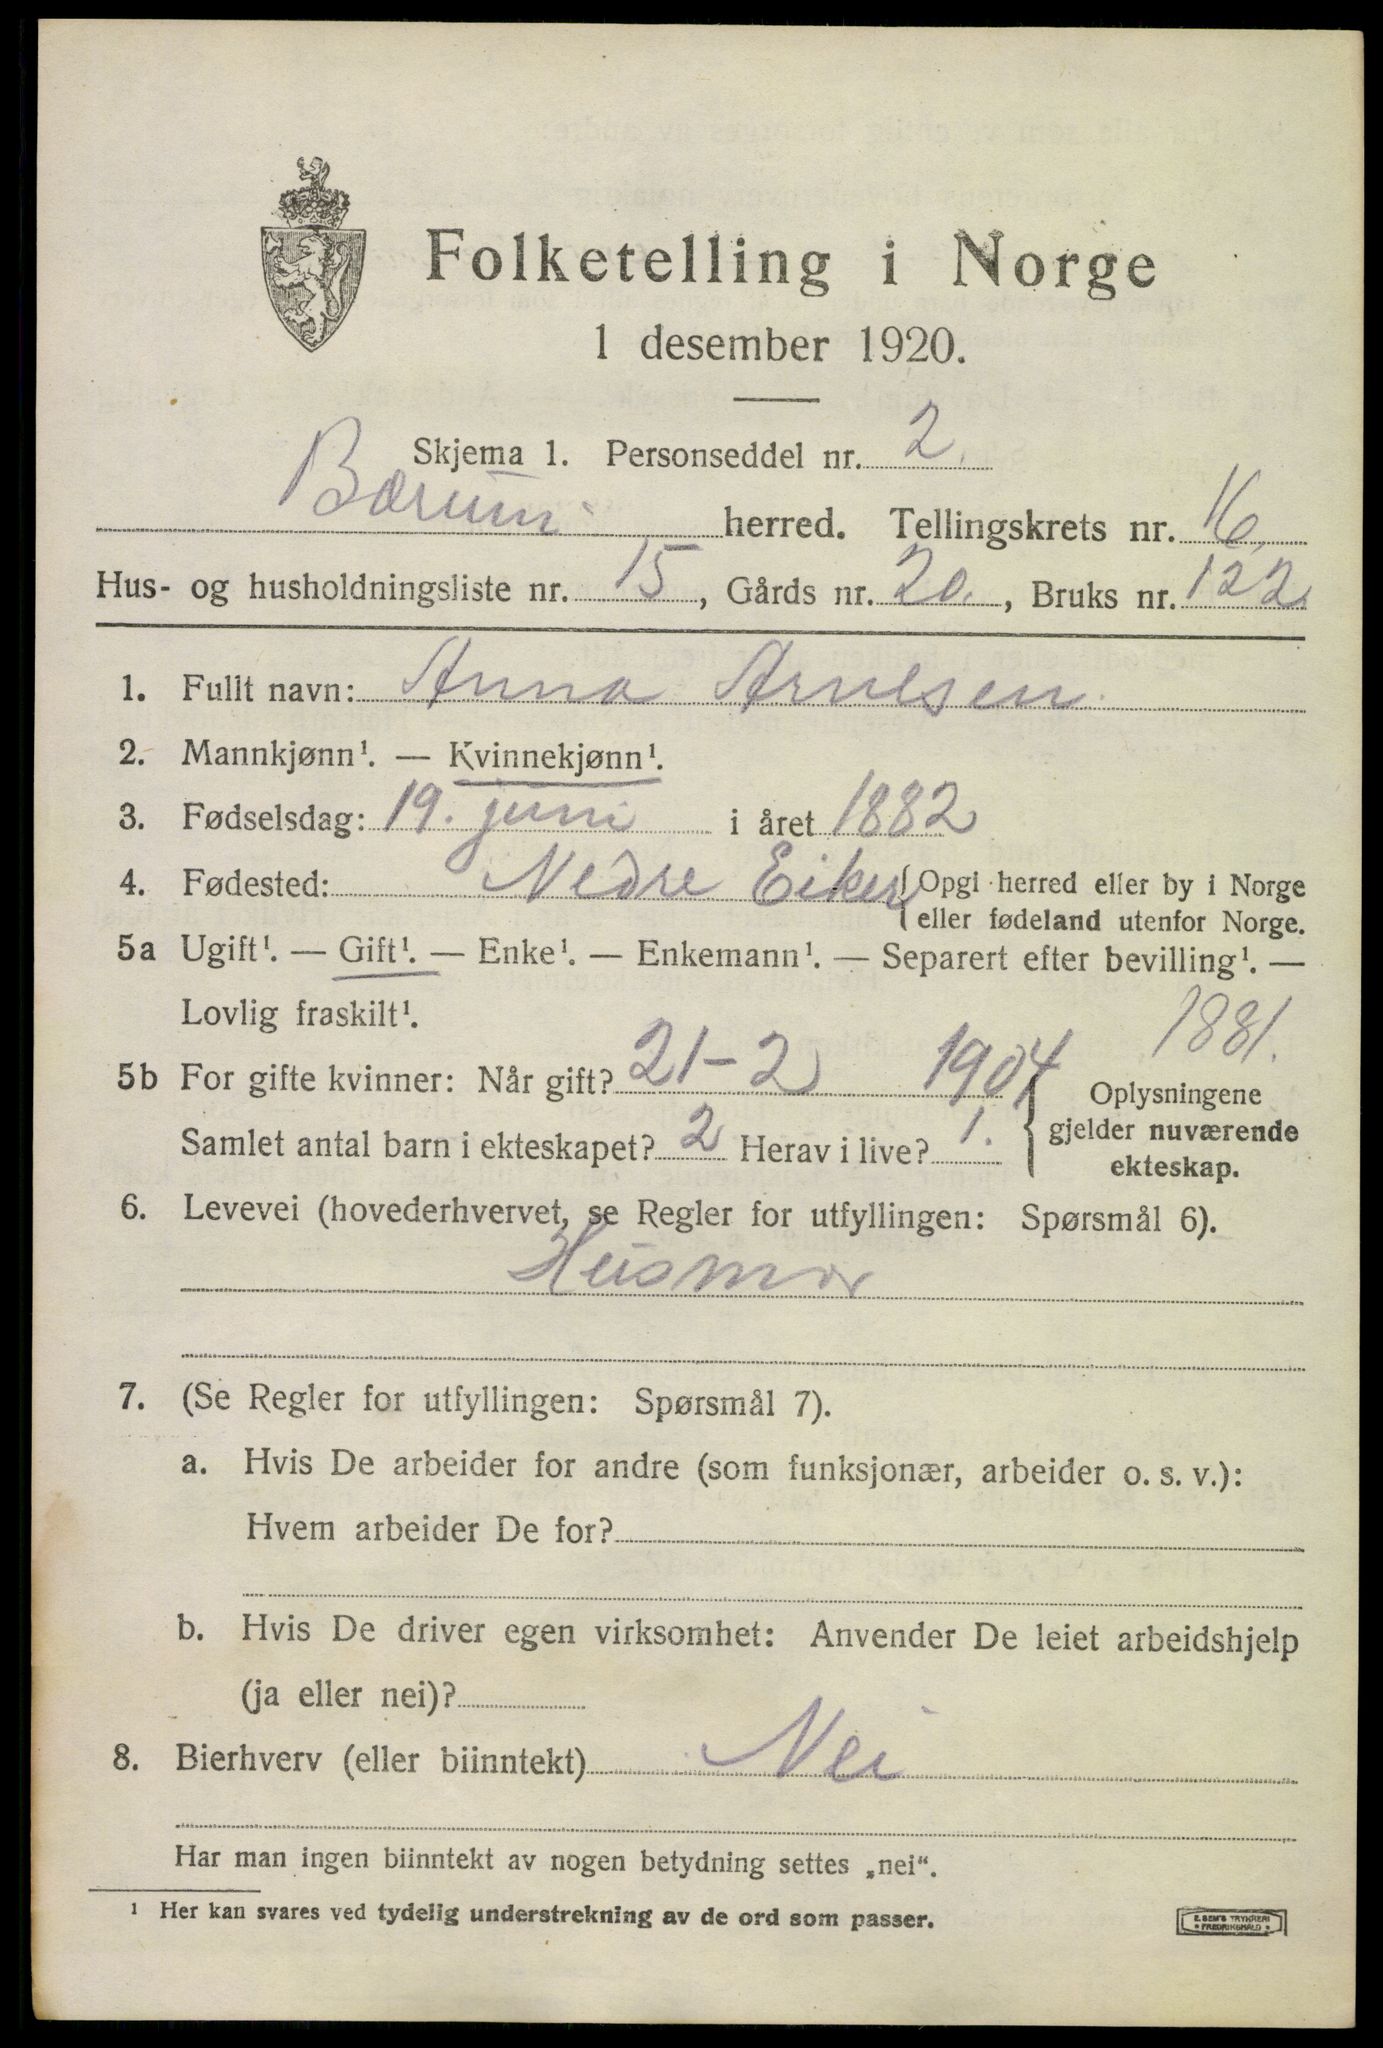 Folketelling i Norge
1 desember 1920.
Skjema 1. Personseddel nr. 2.
Bærum herred. Tellingskrets nr. 16.
Hus- og husholdningsliste nr. 15, Gårds nr. 20., Bruks nr. 122.
1. Fullt navn: Anna Arnesen
2. Mannkjønn¹. — Kvinnekjønn¹.
3. Fødselsdag: 19. juni i året 1882
4. Fødested: Nedre Eiker { Opgi herred eller by i Norge
eller fødeland utenfor Norge.
5a Ugift¹. — Gift¹. — Enke¹. — Enkemann¹. — Separert efter bevilling¹. —
Lovlig fraskilt¹.
1881.
5b For gifte kvinner: Når gift? 21-2 1904
Samlet antal barn i ekteskapet? 2 Herav i live? 1.
{ Oplysningene
gjelder nuværende
ekteskap.
6. Levevei (hovederhvervet, se Regler for utfyllingen: Spørsmål 6).
Husmor
7. (Se Regler for utfyllingen: Spørsmål 7).
a. Hvis De arbeider for andre (som funksjonær, arbeider o. s. v.):
Hvem arbeider De for?
b. Hvis De driver egen virksomhet: Anvender De leiet arbeidshjelp
(ja eller nei)?
8. Bierhverv (eller biinntekt) Nei
Har man ingen biinntekt av nogen betydning settes „nei“.
¹ Her kan svares ved tydelig understrekning av de ord som passer.
E. SEM'S TRYKKERI
* FREDRIKSHALD *